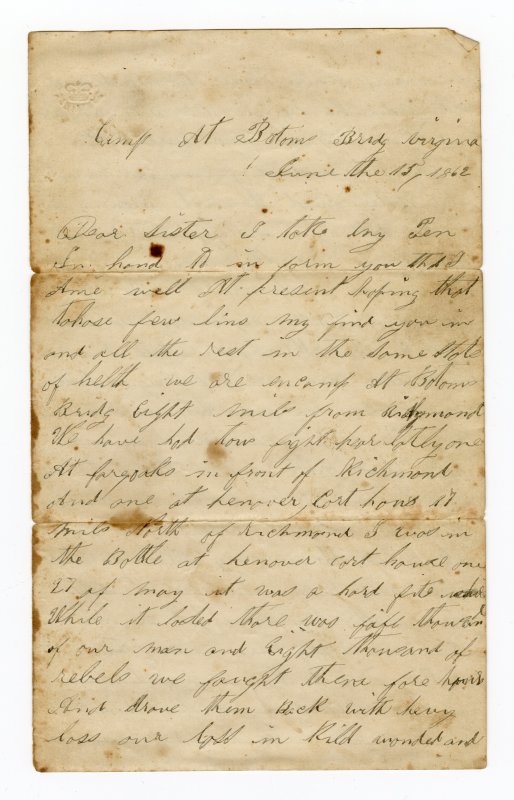 Camp At Botoms Bridg virginia
June the 15, 1862
Dear Sister I take my Pen
In hand to in form you that I
Ame well At present hoping that
those few lins my find you in
and all the rest in the Same State
of helth we are encamp At Botoms
Bridg Eight mils from Richmond
We have had tow fight hear latly one
At faroaks in front of Richmond
And one at henover Cort hous 17
mils North of Richmond I was in
the Battle at henover cort house one
27 of may it was a hard fite
While it lasted thare was fife thousand
of our men and Eight thousand of
rebels we faught there fore hours
And drove them Back with hevy
loss our loss in Kild wonded and